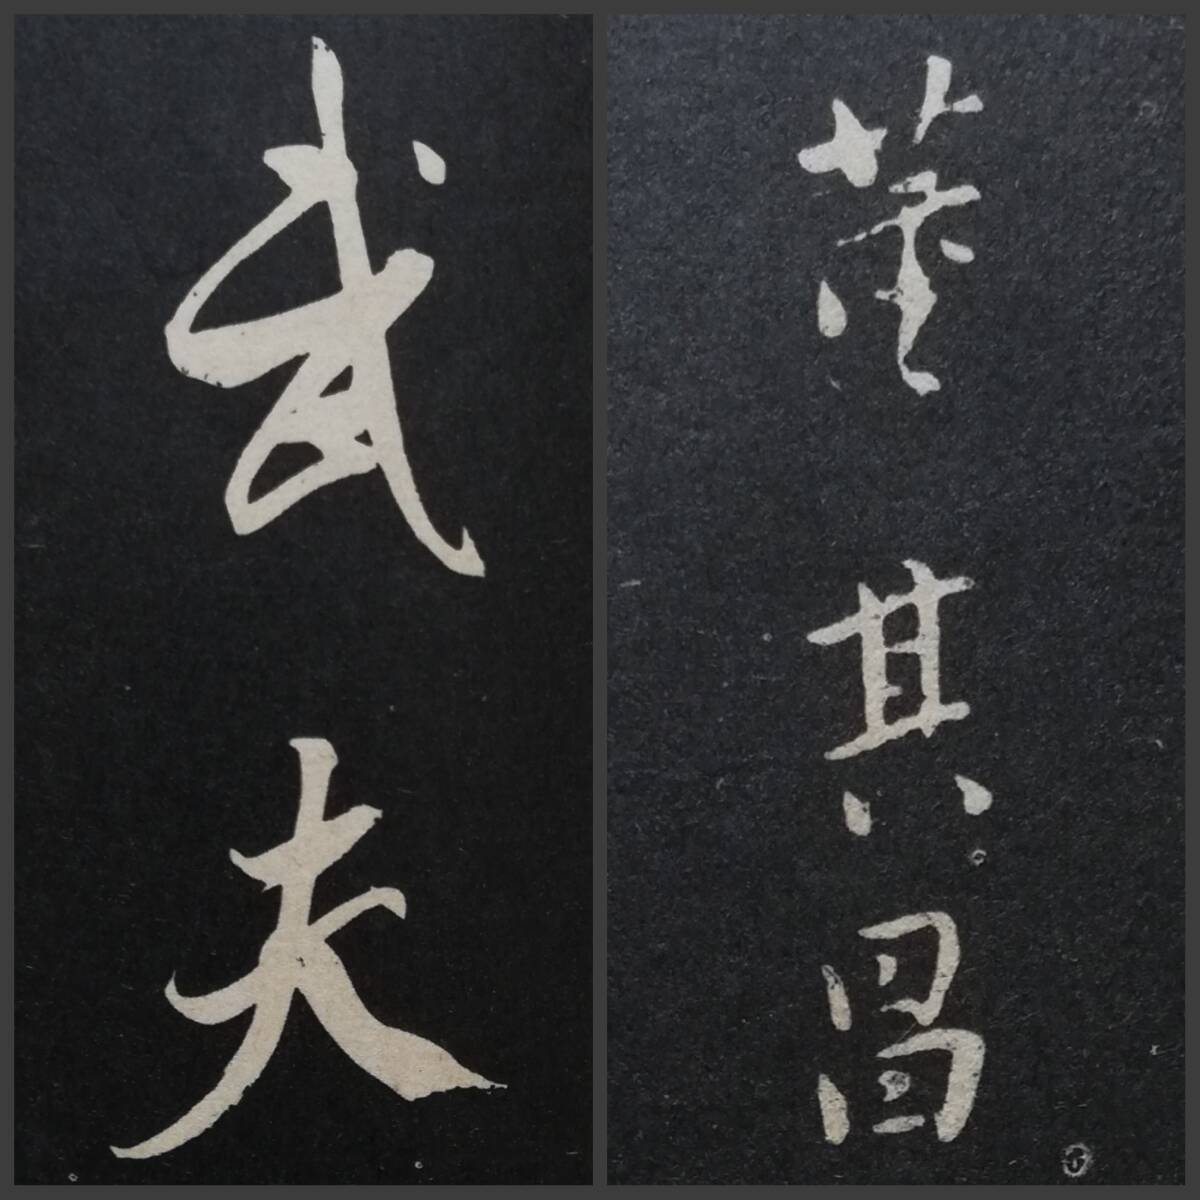 武夫
董其昌